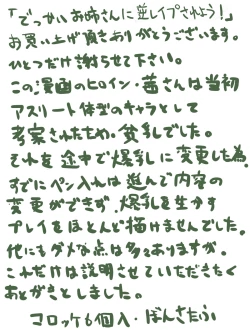 「でっかいお姉さんに逆レイプされよう!」
お買い上げ頂きありがとうございます。
ひとつだけ謝らせて下さい。
この漫画のヒロイン・茜さんは当初
アスリート体型のキャラとして
考案されたため、貧乳でした。
それを途中で爆乳に変更した為、
すでにペン入れは進んで内容の
変更ができず、爆乳を生かす
プレイをほとんど描けませんでした。
他にもダメな点は多々ありますが、
これだけは説明させていただきたく
あとがきとしました。
コロッケ6個入・ぼんさたふ